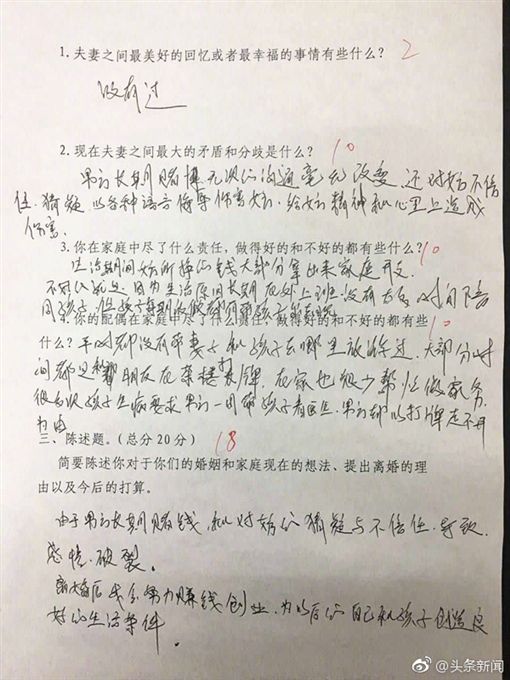 1.夫妻之间最美好的回忆或者最幸福的事情有些什么？ 2
没有过
2.现在夫妻之间最大的矛盾和分歧是什么？ 10
男方长期赌博无次的沟通毫无改变，还对女方不信
任、猜疑，以各种语言侮辱伤害女方，给女方精神和心里上造成
伤害。
3.你在家庭中尽了什么责任，做得好的和不好的都有些什么？10
生活期间女方所挣的钱大部分拿出来家庭开支
不好的就是，因为生活原因长期在外上班没有太多时间下去
同孩子，但孩子每期的假都有
4.你的配偶在家庭中尽了什么责任，做得好的和不好的都有些
什么？ 10
平时都没有带妻子和孩子去哪里旅游过，大部分时
间都是和朋友在茶楼打长牌，在家也很少帮忙做家务，
假如似孩子生病要求男方一同带孩子看医生，男方都以打牌走不开
为由
三、陈述题。（总分20分） 18
简要陈述你对于你们的婚姻和家庭现在的想法、提出离婚的理
由以及今后的打算。
由于男方长期赌钱，和对女方的猜疑与不信任，导致
感情破裂。
离婚后会努力赚钱创业，为以后的自己和孩子创造良
好的生活条件。
@头条新闻